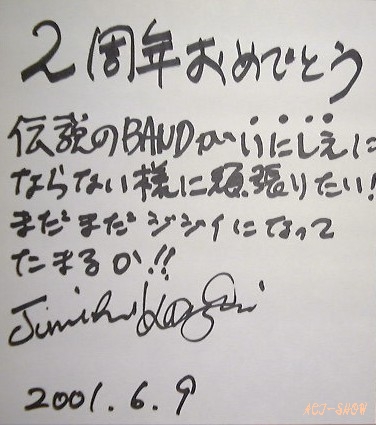 2周年おめでとう
伝説のBANDがいにしえに
ならない様に頑張りたい!
まだまだジジイになって
たまるか!!
2001.6.9